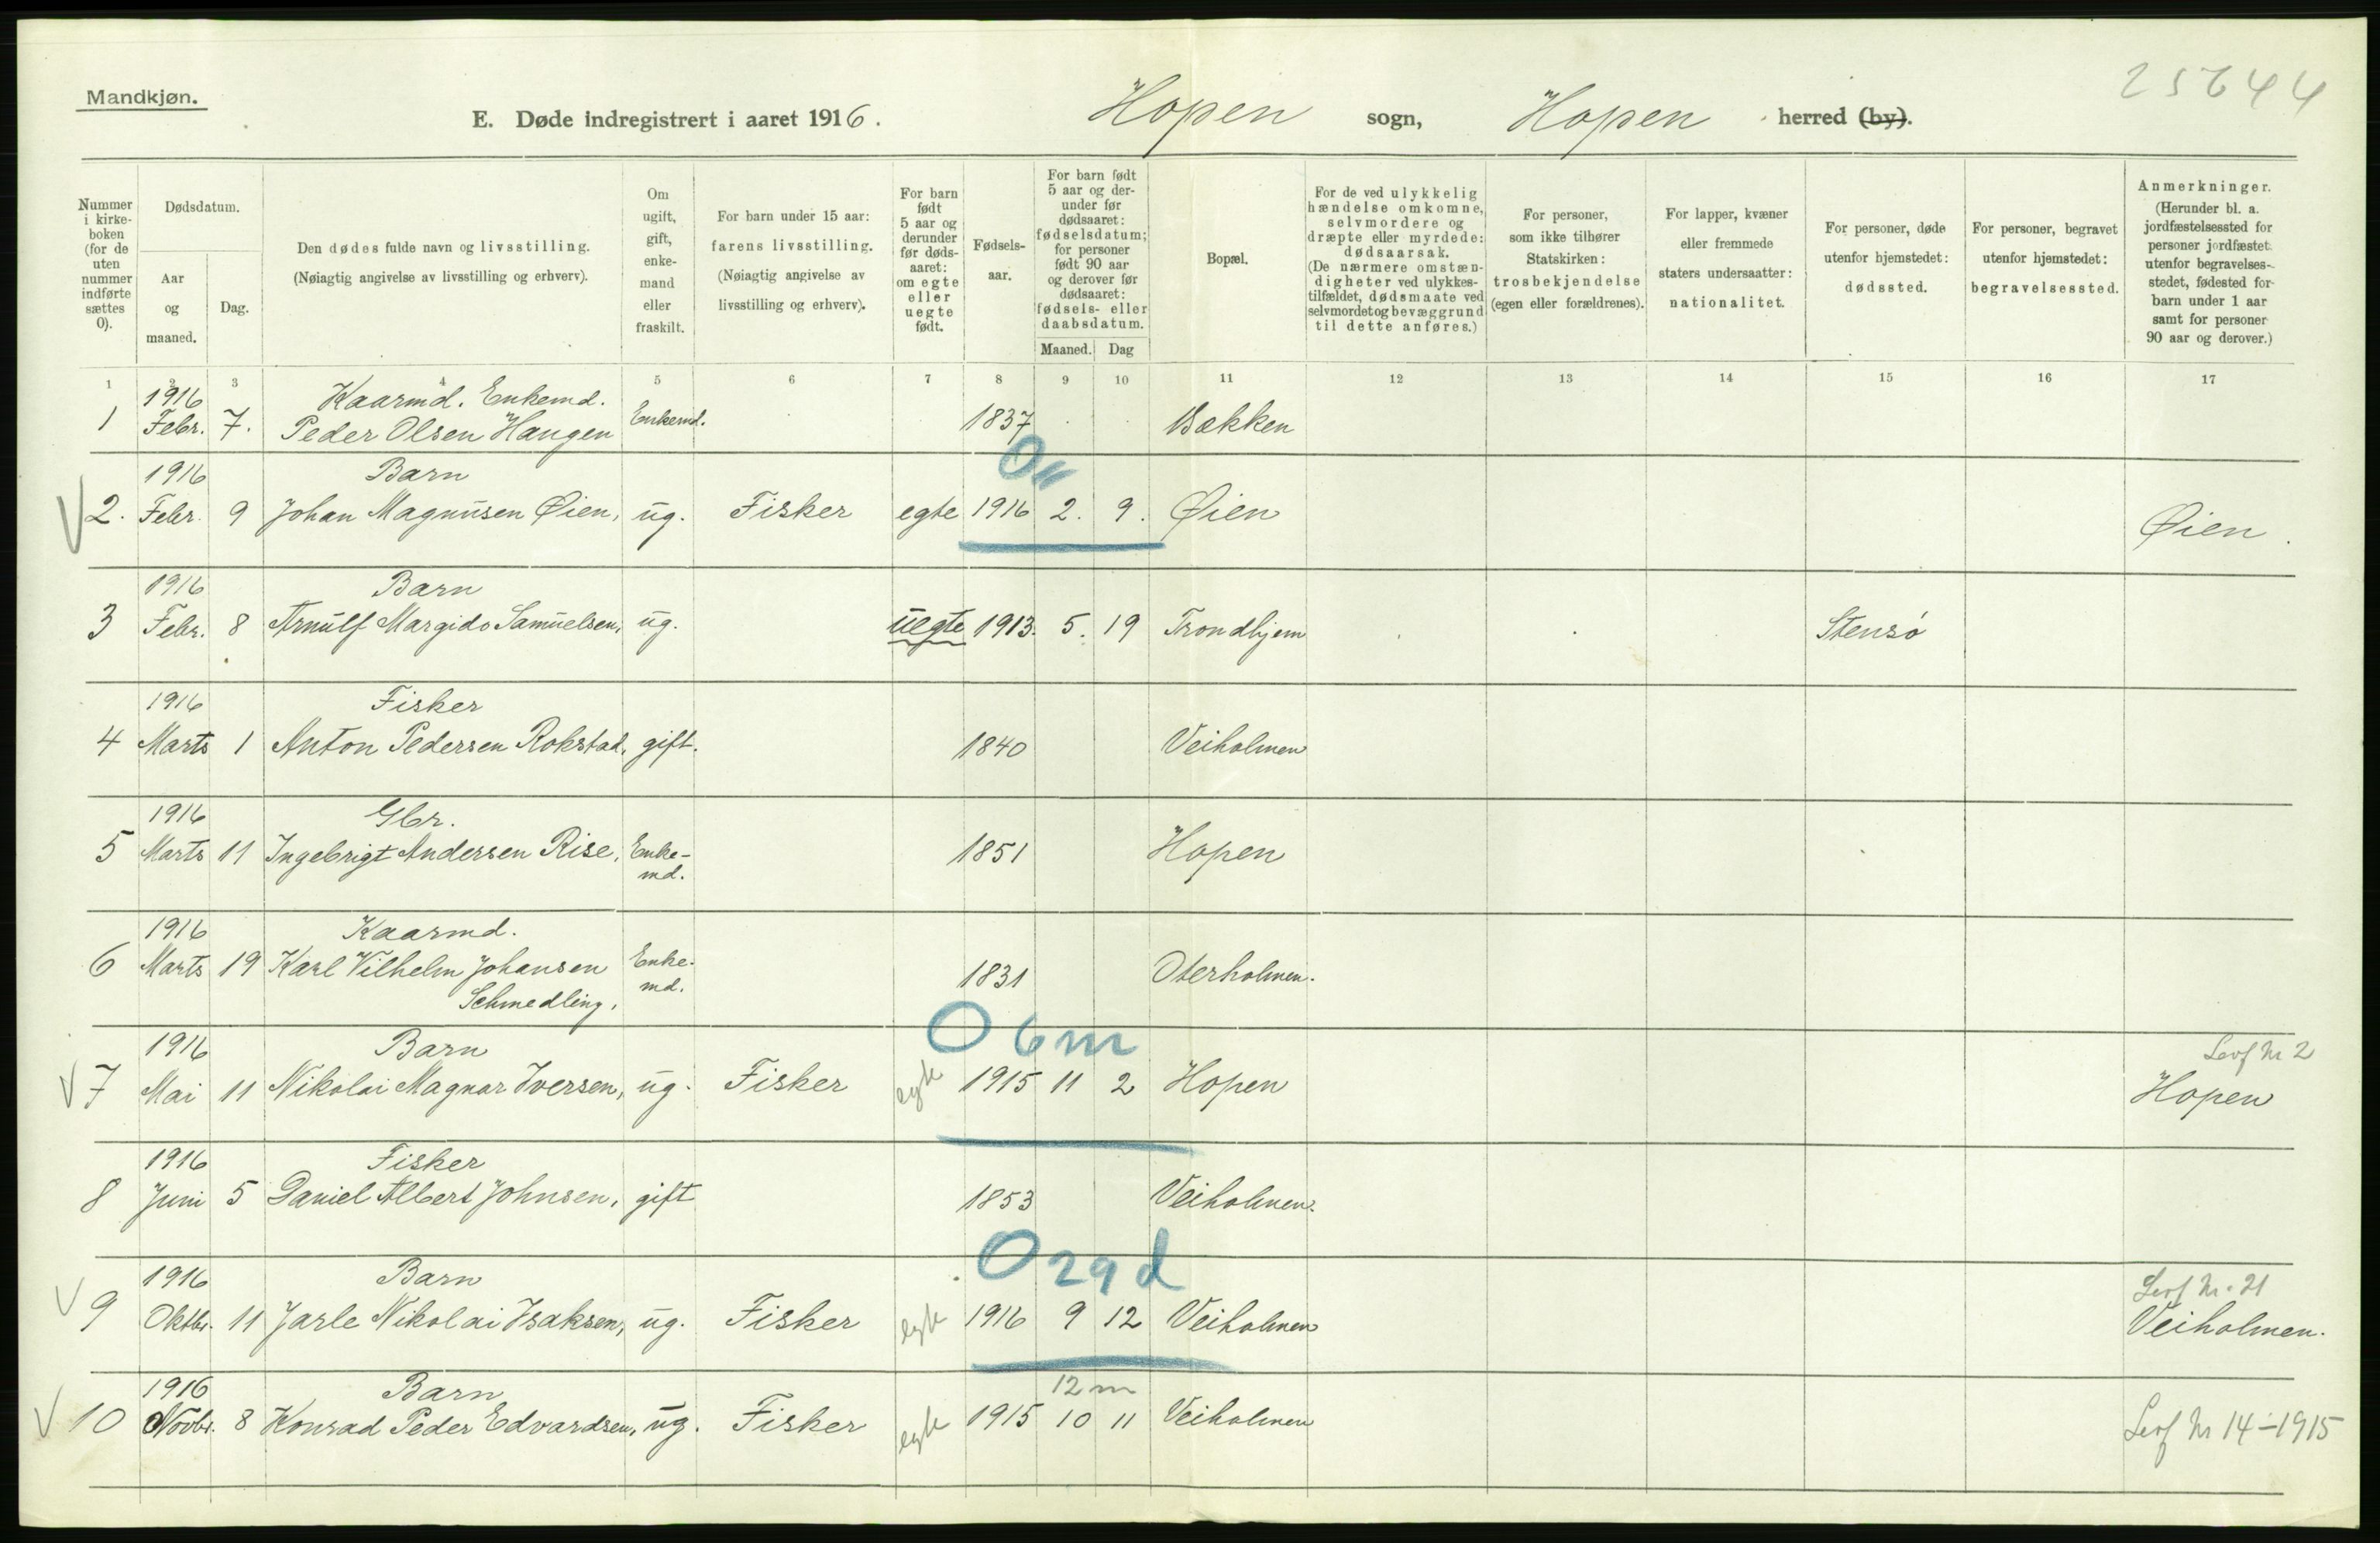 Mandkjøn.
25644
E. Døde indregistrert i aaret 1916. Hopen sogn, Hopen herred (by).
Nummer i kirke-boken (for de uten nummer indførte sættes 0).
Dødsdatum.
Aar og maaned.
Dag.
Den dødes fulde navn og livsstilling.
(Nøiagtig angivelse av livsstilling og erhverv).
Om ugift, gift, enke-mand eller fraskilt.
For barn under 15 aar: farens livsstilling. (Nøiagtig angivelse av livsstilling og erhverv).
For barn født 5 aar og derunder før døds-aaret: om egte eller uegte født.
Fødsels-aar.
For barn født 5 aar og der-under før dødsaaret: fødselsdatum; for personer født 90 aar og derover før dødsaaret: fødsels- eller daabsdatum.
Maaned. Dag
Bopæl.
For de ved ulykkelig hændelse omkomne, selvmordere og dræpte eller myrdede: dødsaarsak. (De nærmere omstæn-digheter ved ulykkes-tilfældet, dødsmaate ved selvmordet og bevæggrund til dette anføres.)
For personer, som ikke tilhører Statskirken: trosbekjendelse (egen eller forældrenes).
For lapper, kvæner eller fremmede staters undersaatter: nationalitet.
For personer, døde utenfor hjemstedet: dødssted.
For personer, begravet utenfor hjemstedet: begravelsessted.
Anmerkninger. (Herunder bl. a. jordfæstelsessted for personer jordfæstet utenfor begravelses-stedet, fødested for barn under 1 aar samt for personer 90 aar og derover.)
1 2 3 4 5 6 7 8 9 10 11 12 13 14 15 16 17
1916 Kaarmd. Enkemd.
1 Febr. 7. Peder Olsen Haugen Enkemd. 1837 Bækken
1916 Barn 0
2. Febr. 9 Johan Magnusen Øien, ug. Fisker egte 1916 2. 9. Øien Øien.
1916 Barn
3 Febr. 8 Arnulf Margido Samuelsen, ug. uegte 1913. 5. 19 Trondhjem Stensø
1916 Fisker
4 Marts 1 Anton Pedersen Rokstad, gift. 1840 Veiholmen
1916 Gbr.
5 Marts 11 Ingebrigt Andersen Rise, Enke-md. 1851 Hopen
1916 Kaarmd.
6 Marts 19 Karl Vilhelm Johansen Schmedling, Enke-md. 1831 Oterholmen.
1916 Barn 0 6m Levf Nr 2
7 Mai 11 Nikolai Magnar Iversen, ug. Fisker egte 1915 11 2 Hopen Hopen
1916 Fisker
8 Juni 5 Daniel Albert Johnsen, gift 1853 Veiholmen.
1916 Barn 0 29 d Levf Nr. 21
9 Oktbr. 11 Jarle Nikolai Isaksen, ug. Fisker egte 1916 9 12 Veiholmen Veiholmen.
1916 Barn 12 m
10 Novbr. 8 Konrad Peder Edvardsen, ug. Fisker egte 1915 10 11 Veiholmen Levf Nr 14-1915